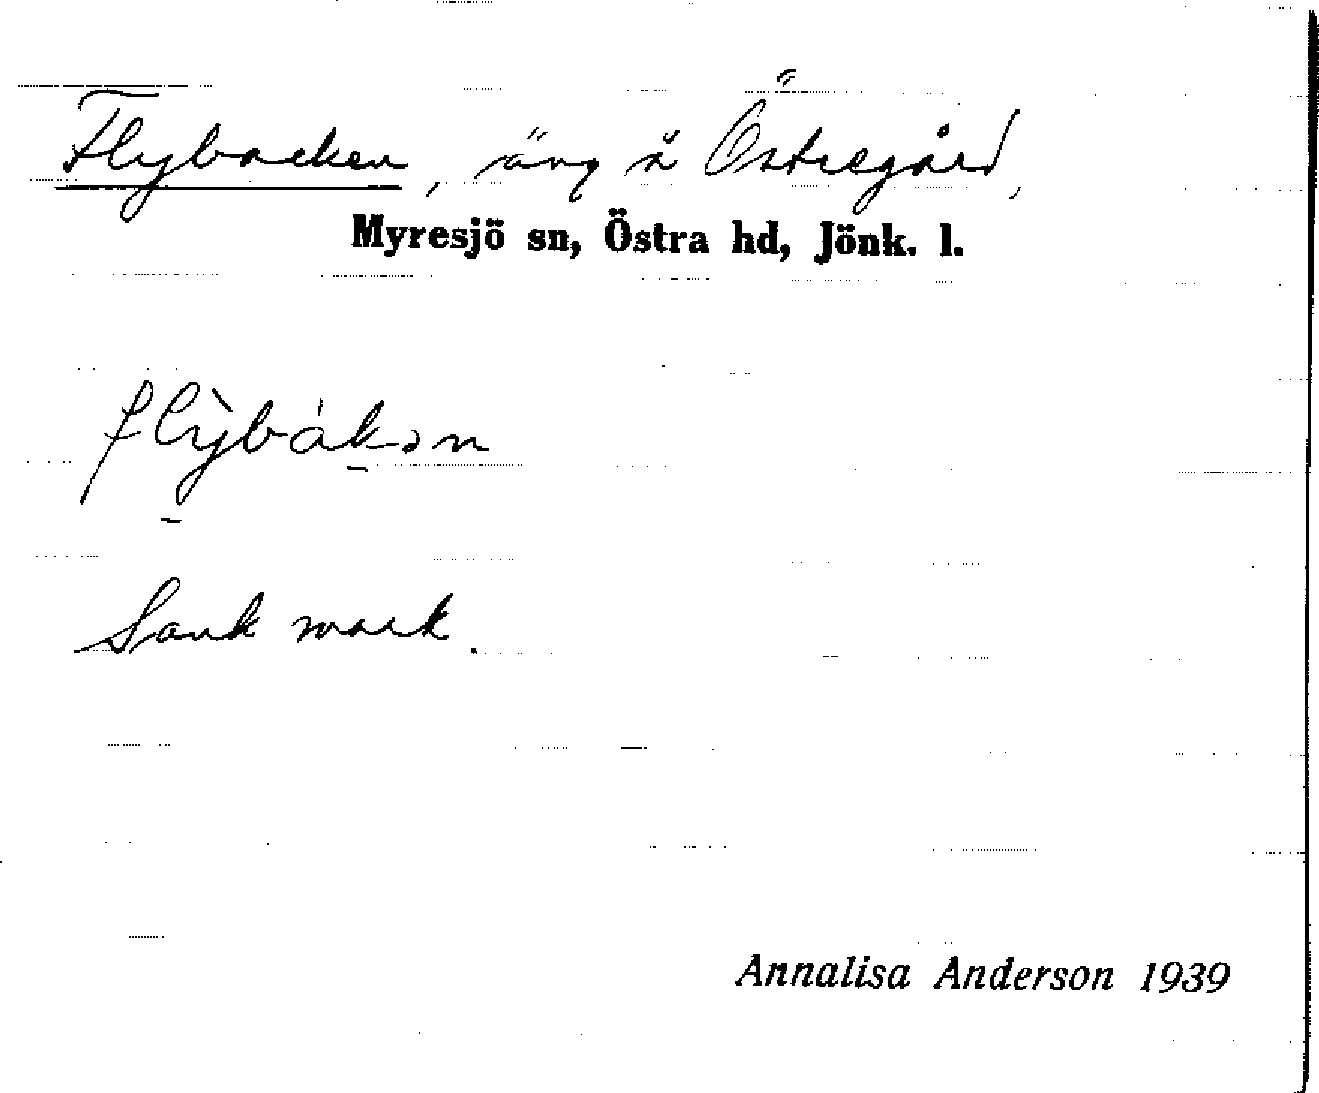 Flybacken, äng å Östregård,
Myresjö sn, Östra hd, Jönk. l.
flỳ̱bák̠ən
Sank mark.
Annalisa Anderson 1939